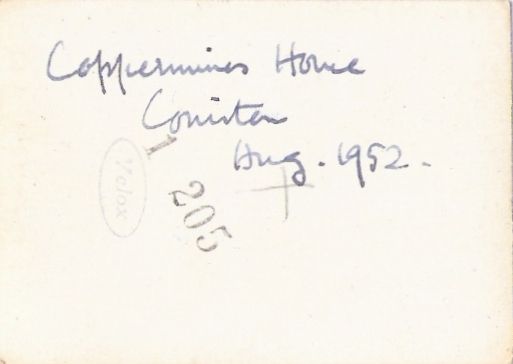 Coppermines House
Coniston
Aug. 1952.
Velox
1 205